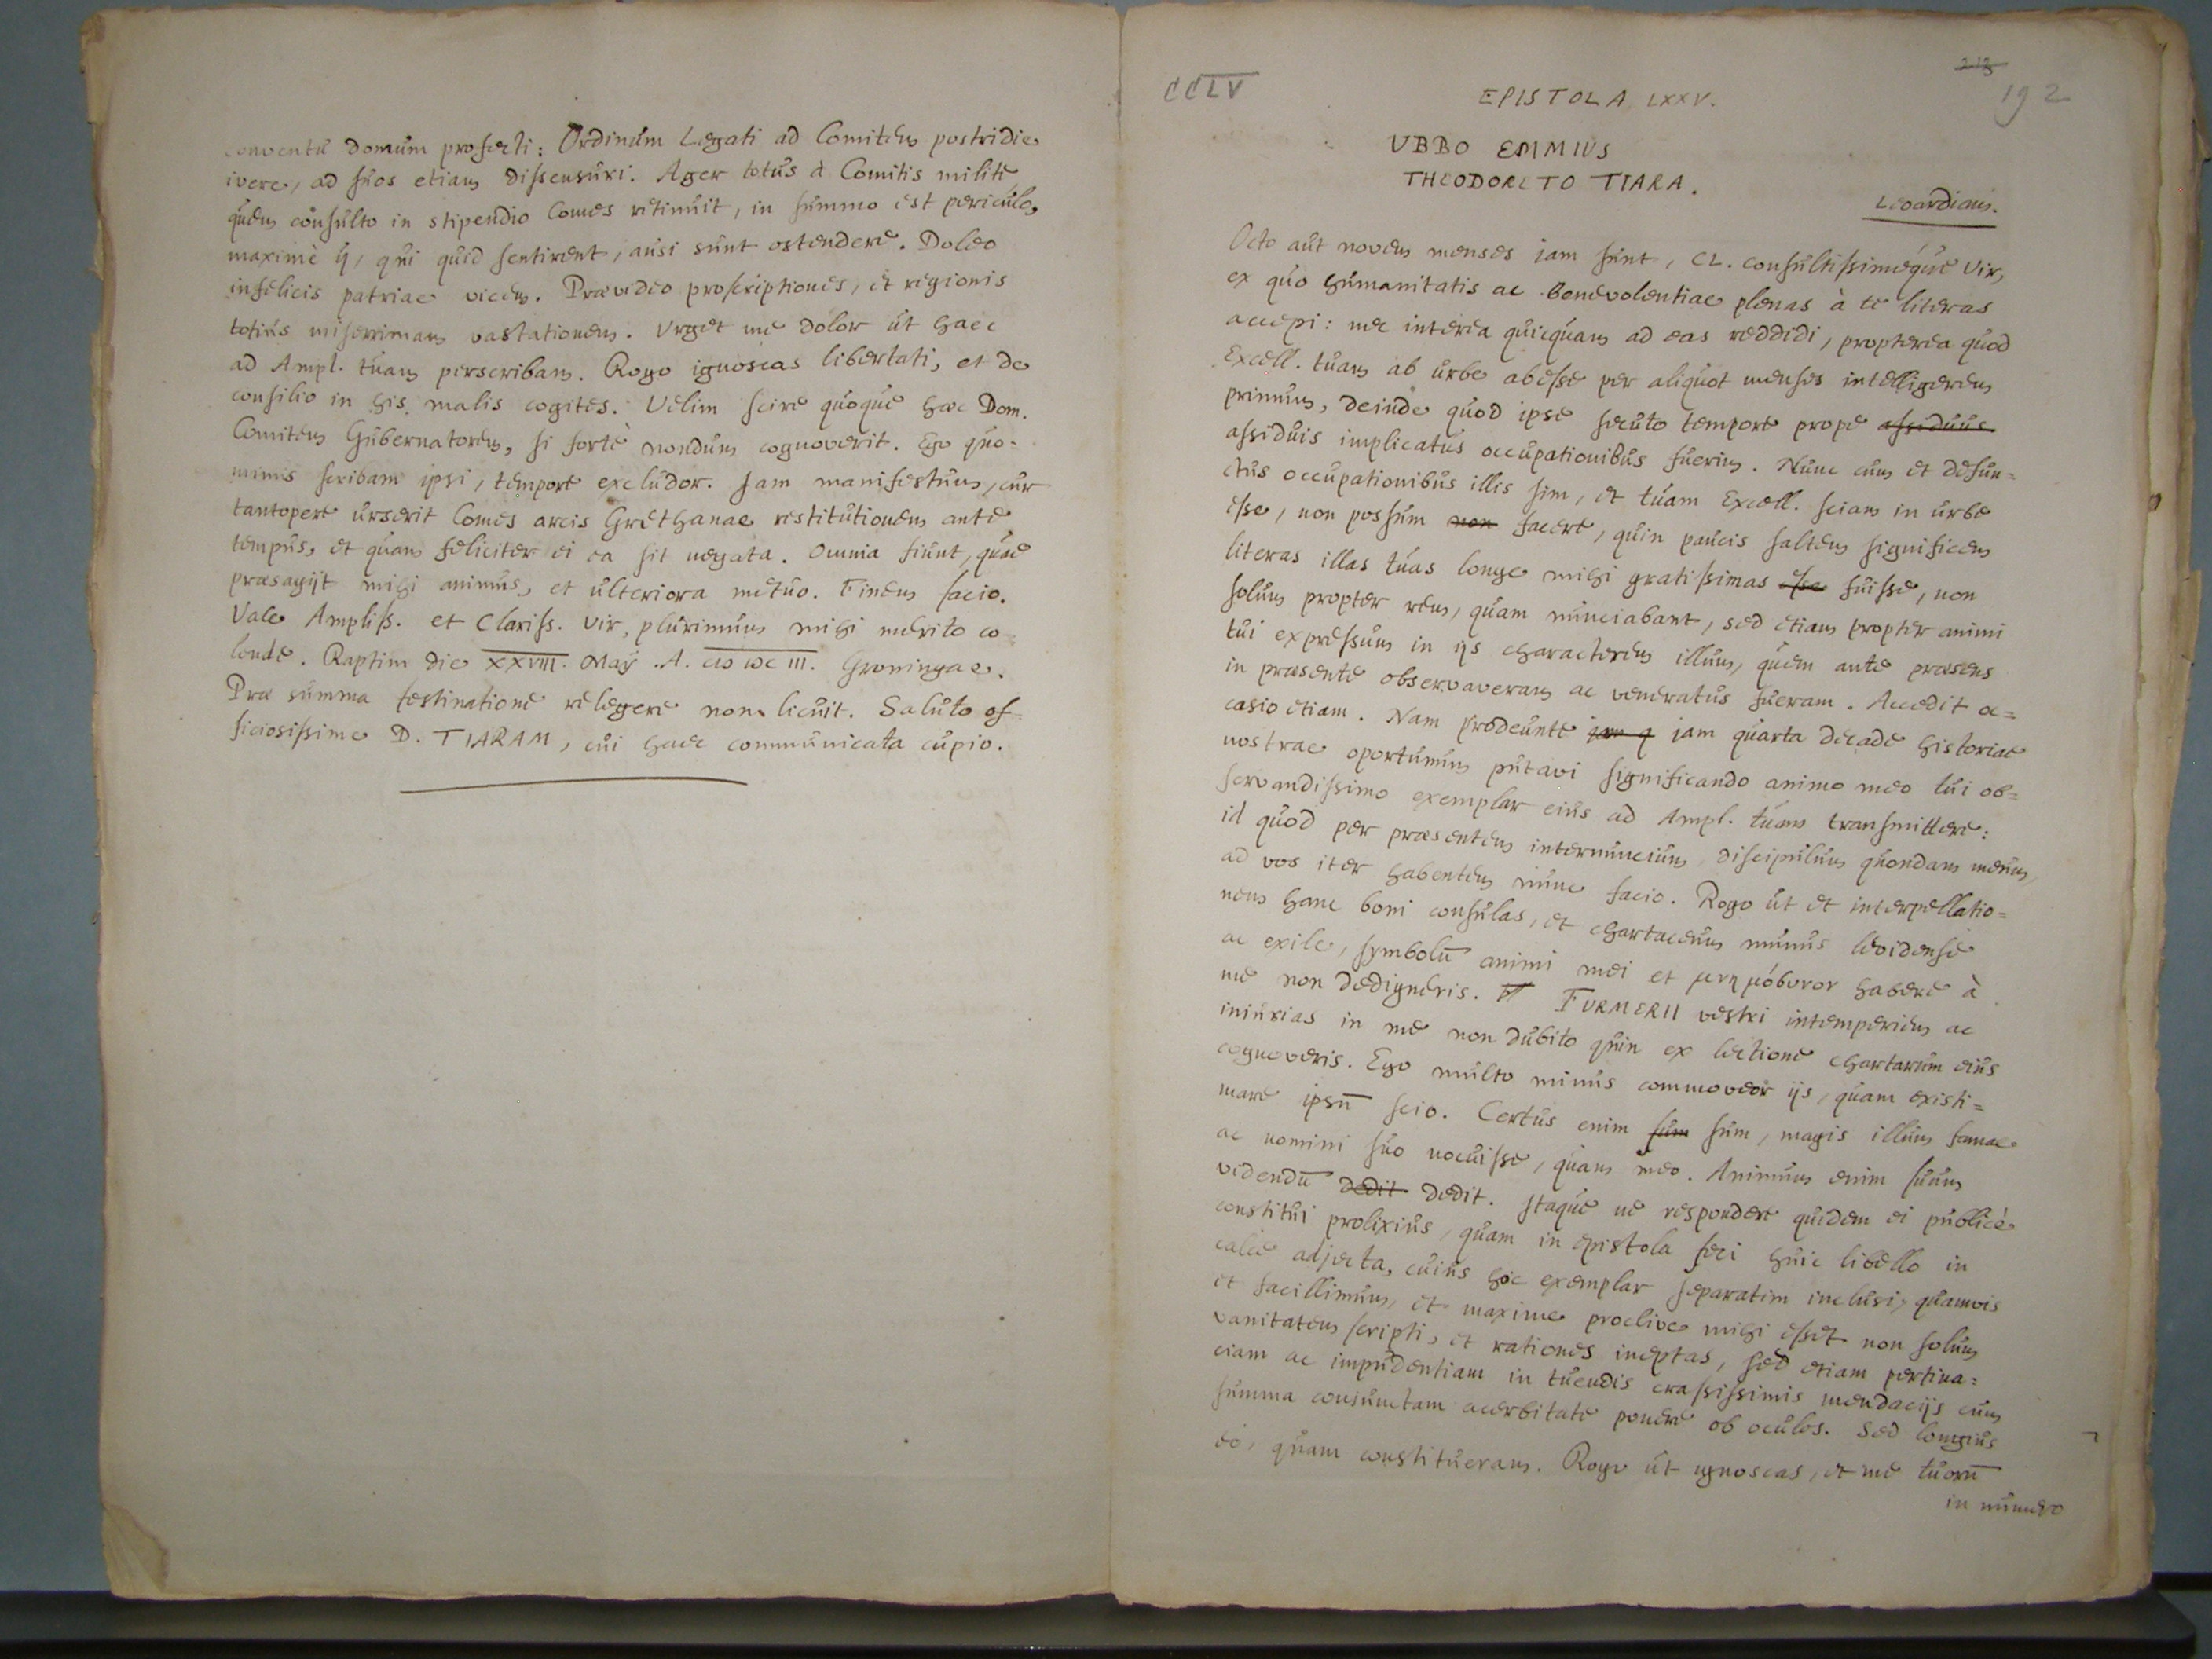 conventu domum profecti: Ordinum Legati ad Comitem postridie
ivere, ad suos etiam dissensuri. Ager totus à Comitis milite,
quem consulto in stipendio Comes retinuit, in summo est periculo,
maximè ij, qui quid sentirent, ausi sunt ostendere. Doleo
infelicis patriae vicem. Prævideo proscriptiones, et regionis
totius miserrimam vastationem. Urget me dolor ut haec
ad Ampl. tuam perscribam. Rogo ignoscas libertati, et de
consilio in his malis cogites. Velim scire quoque hæc Dom.
Comitem Gubernatorem, si fortè nondum cognoverit. Ego quo-
minus scribam ipsi, tempore excludor. Jam manifestum, cur
tantopere urserit Comes arcis Grethanae restitutionem ante
tempus, et quam feliciter ei ea sit negata. Omnia fiunt, quae
præsagijt mihi animus, et ulteriora metuo. Finem facio.
Vale Ampliss. et Clariss. Vir, plurimum mihi merito co=
lende. Raptim die XXVIII. Maÿ .A. CIↃ IↃC III. Groningae.
Præ summa festinatione relegere non licuit. Saluto of-
ficiosissime D. TIARAM, cui haec communicata cupio.
CCLV
213
192
EPISTOLA LXXV.
UBBO EMMIUS
THEODORETO TIARA.
Leoardiam.
Octo aut novem menses jam sunt, CL. consultissimeque Vir,
ex quo humanitatis ac benevolentiae plenas à te literas
accepi: nec interea quicquam ad eas reddidi, propterea quod
Excell. tuam ab urbe abesse per aliquot menses intelligerem
primum, deinde quod ipse secuto tempore prope assiduus
assiduis implicatus occupationibus fuerim. Nunc cum et defun=
ctus occupationibus illis sim, et tuam Excell. sciam in urbe
esse, non possum non facere, quin paucis saltem significem
literas illas tuas longe mihi gratissimas esse fuisse, non
solum propter rem, quam nunciabant, sed etiam propter animi
tui expressum in ijs characterem illum, quem ante præsens
in præsente observaveram ac veneratus fueram. Accedit oc=
casio etiam. Nam prodeunte jam q jam quarta decade historiae
nostrae oportunum putavi significando animo meo tui ob=
servandissimo exemplar eius ad Ampl. tuam transmittere:
id quod per præsentem internuncium, discipulum quondam meum,
ad vos iter habentem nunc facio. Rogo ut et interpellatio=
nem hanc boni consulas, et chartaceum munus levidense
ac exile, symbolū animi mei et μνημόσυνον habere à
me non dedigneris. FURMERII vestri intemperiem ac
iniurias in me non dubito quin ex lectione chartarum eius
cognoveris. Ego multo minus commoveor ijs, quam existi=
mare ipsū scio. Certus enim sum sum, magis illum famae
ac nomini suo nocuisse, quam meo. Animum enim suum
videndū dedit dedit. Itaque ne respondere quidem ei publicè
constitui prolixius, quam in epistola feci huic libello in
calce adjecta, cuius hic exemplar separatim inclusi, quamvis
et facillimum, et maxime proclive mihi esset non solum
vanitatem scripti, et rationes ineptas, sed etiam pertina=
ciam ac impudentiam in tuendis crassissimis mendacijs cum
summa coniunctam acerbitate ponere ob oculos. Sed longius
eo, quam constitueram. Rogo ut ignoscas, et me tuorū
in numero